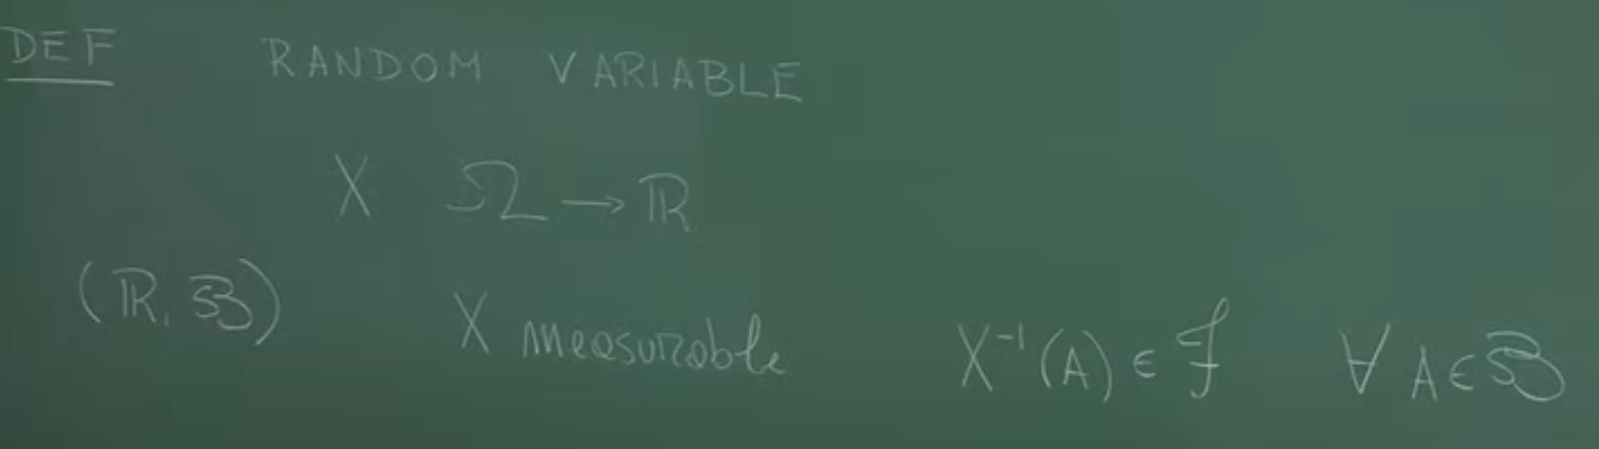 DEF RANDOM VARIABLE
X Ω → ℝ
(ℝ, ℬ) X measurable X⁻¹(A) ∈ ℱ ∀ A ∈ ℬ